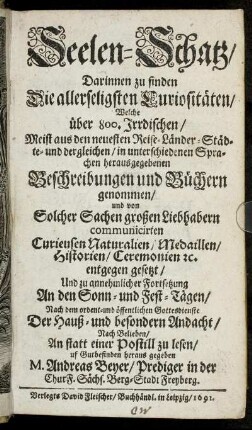 Seelen-Schatz/
Darinnen zu finden
Die allerseligsten Curiositäten/
Welche
über 800. Irrdischen/
Meist aus den neuesten Reise-Länder-Städ-
te- und dergleichen/ in unterschiedenen Spra-
chen herausgegebenen
Beschreibungen und Büchern
genommen/
und von
Solcher Sachen großen Liebhabern
communicirten
Curieusen Naturalien/ Medaillen/
Historien/ Ceremonien ꝛc.
entgegen gesetzt/
Und zu annehmlicher Fortsetzung
An den Sonn- und Fest-Tägen/
Nach dem ordent- und öffentlichen Gottesdienste
Der Hauß- und besondern Andacht/
Nach Belieben/
An statt einer Postill zu lesen/
uf Gutbefinden heraus gegeben
M. Andreas Beyer/ Prediger in der
Churf. Sächs. Berg-Stadt Freyberg.
Verlegts David Fleischer/ Buchhändl. in Leipzig/ 1691.